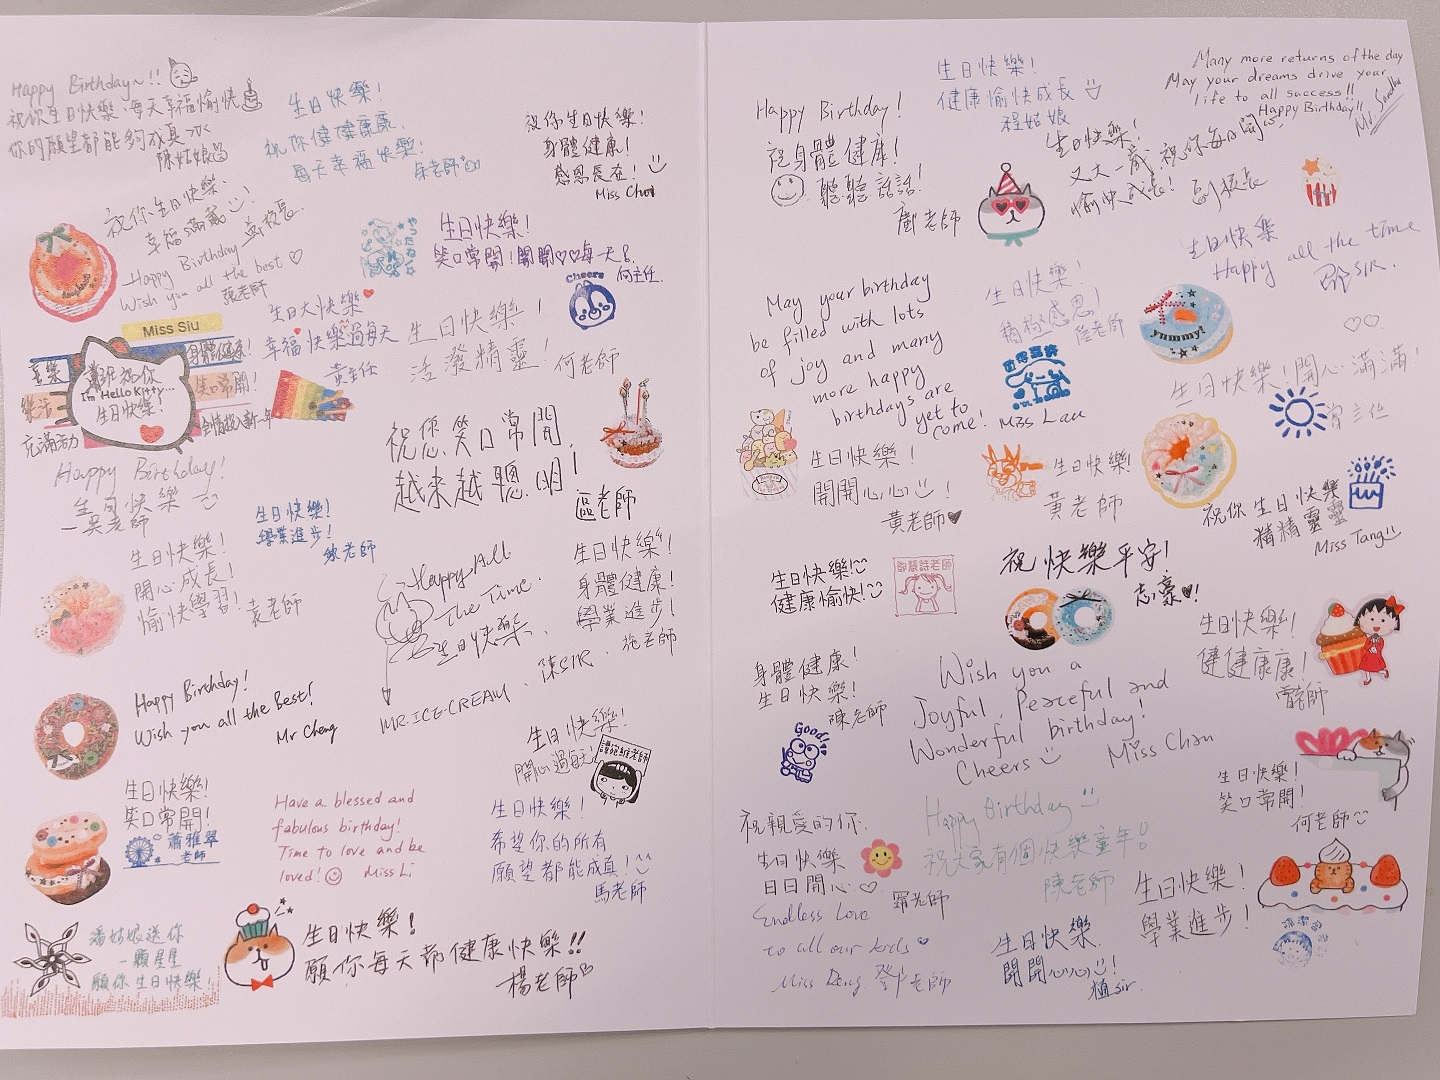 Happy Birthday~!!
祝你生日快樂、每天幸福愉快
你的願望都能夠成真
陳姑娘
生日快樂!
祝你健健康康,
每天幸福快樂!
朱老師
祝你生日快樂!
身體健康!
感恩長在!
Miss Choi
祝你生日快樂、
幸福滿載
鄭校長
Happy Birthday
Wish you all the best ♡
張老師
生日快樂!
笑口常開!開開♡♡每一天!
何主任
Cheers
生日大快樂
幸福快樂過每天
黃主任
生日快樂!
活潑精靈!
何老師
Miss Siu
喜樂
身體健康!
蕭祝你
I'm Hello Kitty...
生日快樂!
樂活
笑口常開!
充滿活力
全情投入新一年
祝您笑口常開,
越來越聰明!
區老師
Happy Birthday!
生日快樂
—吳老師
生日快樂!
學業進步!
敏老師
生日快樂!
開心成長!
愉快學習!
袁老師
Happy All
The Time.
生日快樂.
陳SIR.
MR. ICE-CREAM.
生日快樂!
身體健康!
學業進步!
施老師
Happy Birthday!
Wish you all the Best!
Mr Cheng
生日快樂!
開心過每天!
譚詠雅老師
生日快樂!
笑口常開!
蕭雅翠
老師
Have a blessed and
fabulous birthday!
Time to love and be
loved!
Miss Li
生日快樂!
希望你的所有
願望都能成真!
馬老師
潘姑娘送你
一顆星星
願你生日快樂!
生日快樂!
願你每天都健康快樂!!
楊老師
Happy Birthday!
祝身體健康!
聽聽話話!
鄺老師
生日快樂!
健康愉快成長
程姑娘
Many more returns of the day
May your dreams drive your
life to all success!!
Happy Birthday!!
Mr. Sandhu
生日快樂!
又大一歲,祝你每日開心
愉快成長!
副校長
生日快樂
Happy all the time
鄧SIR.
May your birthday
be filled with lots
of joy and many
more happy
birthdays are
yet to
come!
Miss Lau
生日快樂!
積極感恩!
陸老師
值得嘉許
yummy!
生日快樂!開心滿滿!
曾主任
生日快樂!
開開心心!
黃老師
生日快樂!
黃老師
祝你生日快樂
精精靈靈
Miss Tang
生日快樂!
健康愉快!
鄧慧詩老師
祝快樂平安!
志豪♥!
生日快樂!
健健康康!
曾老師
身體健康!
生日快樂!
陳老師
Good!
Wish you a
Joyful, Peaceful and
Wonderful birthday!
Cheers
Miss Chan
生日快樂!
笑口常開!
何老師
祝親愛的你,
生日快樂
日日開心♡
羅老師
Happy Birthday
祝大家有個快樂童年!
陳老師
Endless Love
to all our kids
Miss Deng 鄧老師
生日快樂,
開開心心!
植sir.
生日快樂!
學業進步!